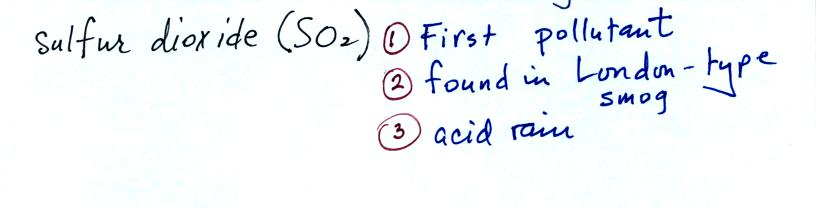 Sulfur dioxide (SO₂) ① First pollutant
② found in London-type
smog
③ acid rain